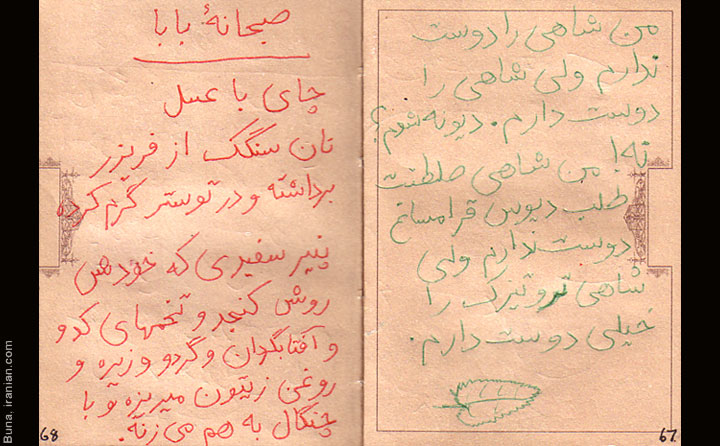 من شاهی را دوست
ندارم ولی شاهی را
دوست دارم. دیونه شدم؟
نه! من شاهی سلطنت
طلب دیوس قرامساغ
دوست ندارم ولی
شاهی تروتیزک را
خیلی دوست دارم.
67
صبحانهٔ بابا
چای با عسل
نان سنگک از فریزر
برداشته و در توستر گرم کرده
پنیر سفیدی که خودش
روش کنجد و تخمهای کدو
و آفتابگردان و گردو و زیره و
روغن زیتون میریزه و با
چنگال به هم می زنه.
68
Buna, iranian.com